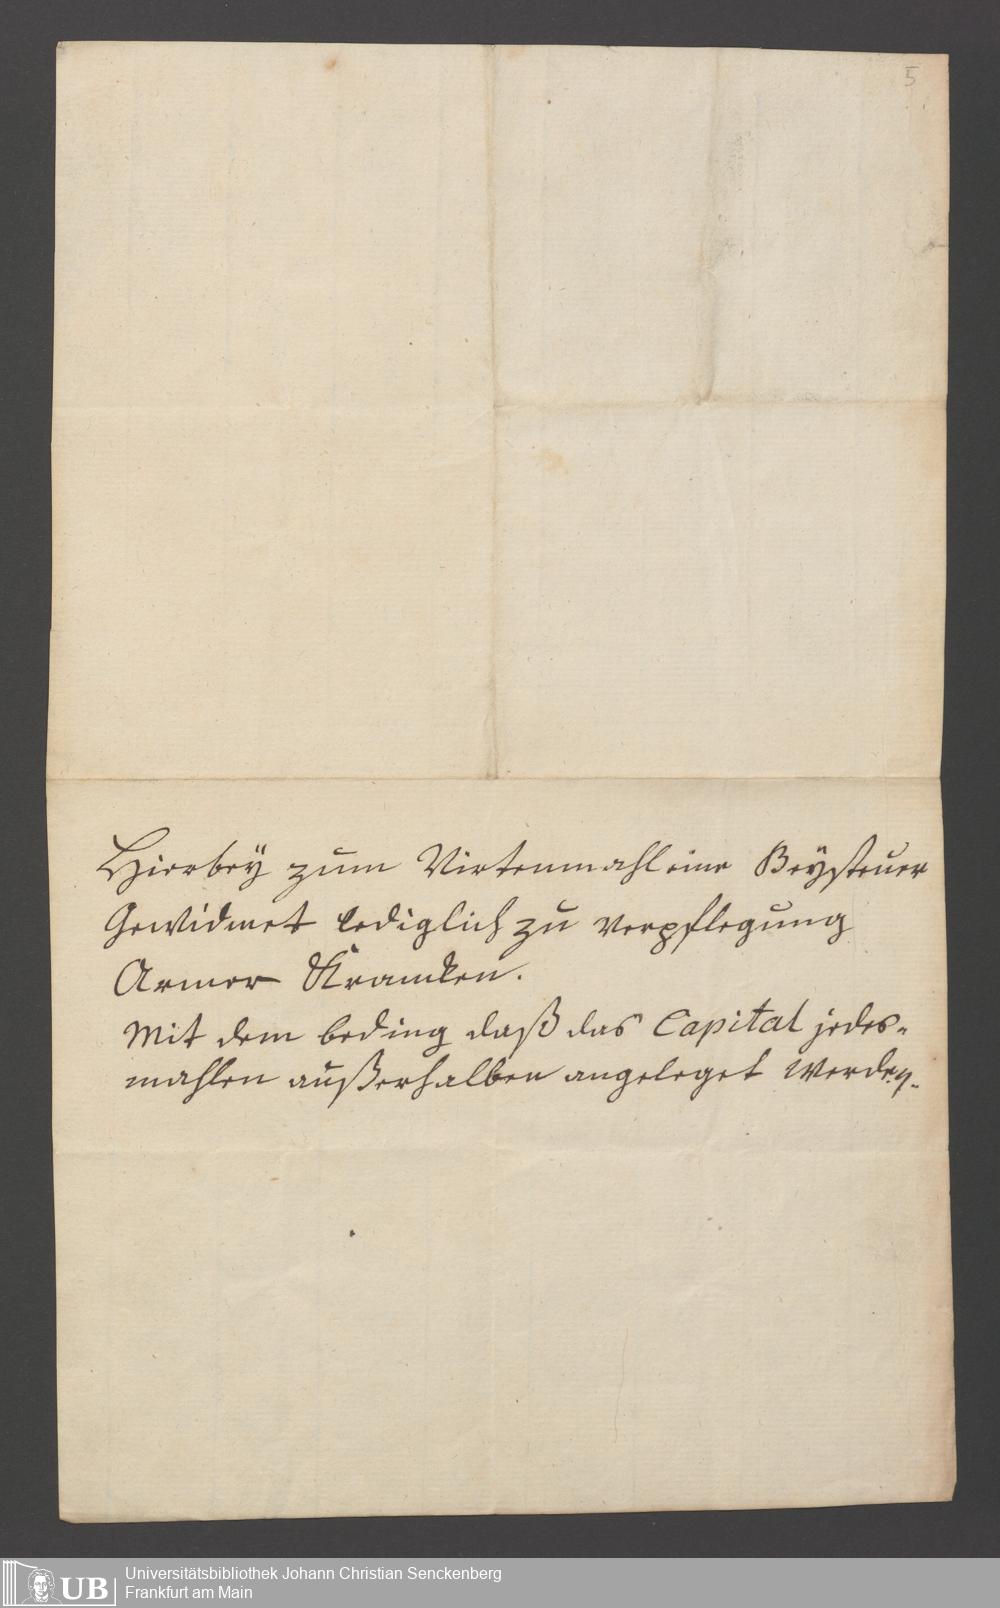 5
Hierbey zum Virtenmahl eine Beysteuer
Gewidmet lediglich zu verpflegung
Armer Krancken.
Mit dem beding daß das Capital jedes-
mahlen außerhalben angeleget werden.
UB
Universitätsbibliothek Johann Christian Senckenberg
Frankfurt am Main